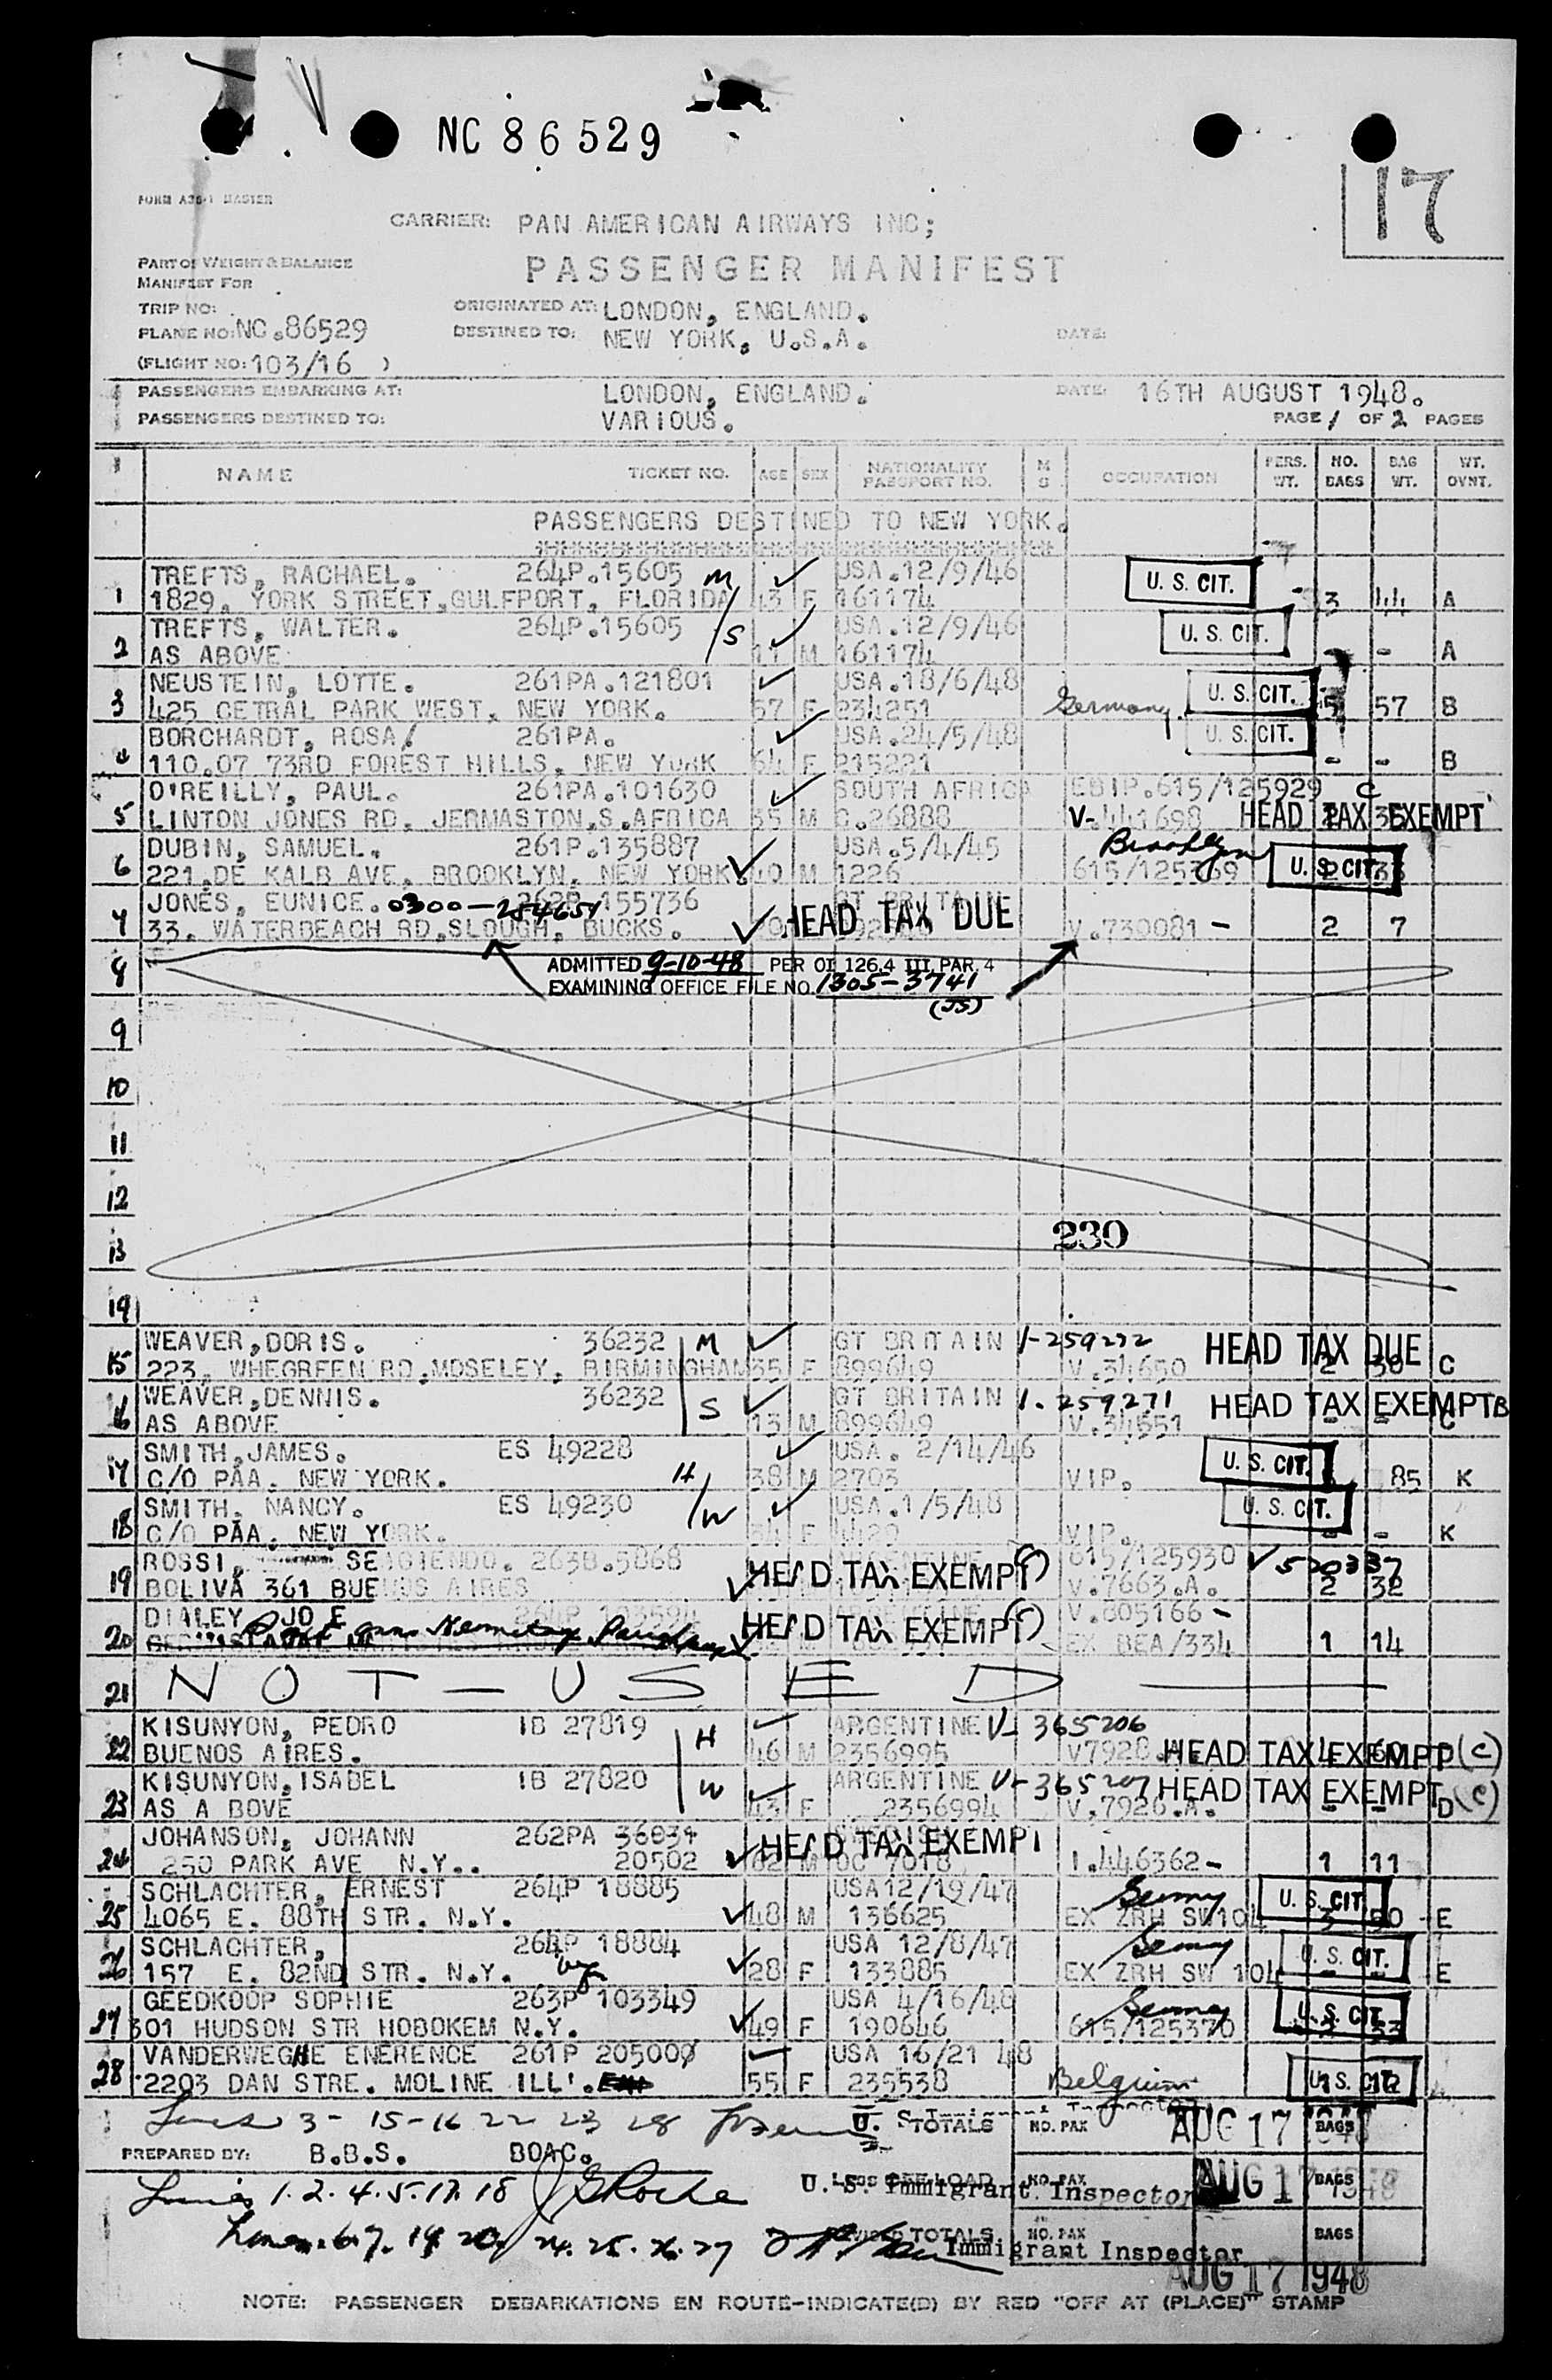 NC 86529
17
CARRIER: PAN AMERICAN AIRWAYS INC;
PASSENGER MANIFEST
PART OF WEIGHT & BALANCE
MANIFEST FOR
TRIP NO:
ORIGINATED AT: LONDON, ENGLAND.
PLANE NO: NC.86529
DESTINED TO: NEW YORK, U.S.A.
DATE:
(FLIGHT NO: 103/16 )
PASSENGERS EMBARKING AT: LONDON, ENGLAND. DATE: 16TH AUGUST 1948.
PASSENGERS DESTINED TO: VARIOUS. PAGE 1 OF 2 PAGES
NAME TICKET NO. AGE SEX NATIONALITY PASSPORT NO. M S OCCUPATION PERS. WT. NO. BAGS BAG WT. WT. OVNT.
PASSENGERS DESTINED TO NEW YORK.
TREFTS, RACHAEL. 264P.15605 M USA.12/9/46 U. S. CIT.
1 1829, YORK STREET,GULFPORT, FLORIDA 43 F 161174 3 44 A
TREFTS, WALTER. 264P.15605 S USA.12/9/46 U. S. CIT.
2 AS ABOVE 11 M 161174 - - A
NEUSTEIN, LOTTE. 261PA.121801 USA.18/6/48 U. S. CIT.
3 425 CETRAL PARK WEST, NEW YORK. 57 F 234251 Germany 5 57 B
BORCHARDT, ROSA. 261PA. USA.24/5/48 U. S. CIT.
4 110.07 73RD FOREST HILLS, NEW YORK 64 F 215221 - - B
O'REILLY, PAUL. 261PA.101630 SOUTH AFRICA 615/125929 C
5 LINTON JONES RD, JERMASTON,S.AFRICA 35 M C.26888 V-441698 HEAD TAX EXEMPT
DUBIN, SAMUEL. 261P.135887 USA.5/4/45 Brooklyn
6 221,DE KALB AVE, BROOKLYN, NEW YORK. 40 M 1226 615/125369 U. S. CIT.
JONES, EUNICE. 0300-254651 155736 GT BRITAIN HEAD TAX DUE
7 33, WATERBEACH RD,SLOUGH, BUCKS. V.730081 - 2 7
8 ADMITTED 9-10-48 PER OI 126.4 III PAR. 4
EXAMINING OFFICE FILE NO. 1305-3741
(JS)
9
10
11
12
13 230
14
WEAVER,DORIS. 36232 M GT BRITAIN 1-259272 HEAD TAX DUE
15 223, WHEGREEN RD,MOSELEY, BIRMINGHAM 35 F 899649 V.34650 2 30 C
WEAVER,DENNIS. 36232 S GT BRITAIN 1.259271 HEAD TAX EXEMPT
16 AS ABOVE 13 M 899649 V.34551 - - C
SMITH,JAMES. ES 49228 USA. 2/14/46 U. S. CIT.
17 C/O PAA. NEW YORK. H 38 M 2703 VIP. 85 K
SMITH, NANCY. ES 49230 W USA.1/5/48 U. S. CIT.
18 C/O PAA. NEW YORK. 34 F VIP. - - K
ROSSI, 263B.5868 HEAD TAX EXEMPT (C) 615/125930 V 520337
19 BOLIVA 361 BUENOS AIRES V.7663.A. 2 32
HEAD TAX EXEMPT (C) V.605166 -
20 EX BEA/334 1 14
21 NOT - USED
KISUNYON, PEDRO IB 27819 H ARGENTINE V- 365206
22 BUENOS AIRES. 46 M 2356995 V7928 HEAD TAX EXEMPT (C)
KISUNYON,ISABEL IB 27820 W ARGENTINE V- 365207 HEAD TAX EXEMPT (C)
23 AS A BOVE 43 F 2356994 V.7926.A. - - D
JOHANSON, JOHANN 262PA 36034 HEAD TAX EXEMPT
24 250 PARK AVE N.Y.. 20502 62 M 1.446362- 1 11
SCHLACHTER, ERNEST 264P 18885 USA12/19/47 Germy U. S. CIT.
25 4065 E. 88TH STR. N.Y. 48 M 136625 EX ZRH SW104 3 50 E
SCHLACHTER, 264P 18884 USA 12/8/47 Germy U. S. CIT.
26 157 E. 82ND STR. N.Y. 28 F 133885 EX ZRH SW 104 - - E
GEEDKOOP SOPHIE 263P 103349 USA 4/16/48 Germy U. S. CIT.
27 301 HUDSON STR HOBOKEM N.Y. 49 F 190646 615/125370
VANDERWEGHE ENERENCE 261P 205000 USA 16/21 48
28 2203 DAN STRE. MOLINE ILL'. 55 F 235538 Belgium U. S. CIT.
Lines 3 - 15-16 22 - 23 28 U. S. Immigrant Inspector
TOTALS NO. PAX AUG 17 1948 BAGS
PREPARED BY: B.B.S. BOAC.
Lines 1.2.4.5.17.18 J G Roche U. S. Immigrant Inspector NO. PAX AUG 17 1948 BAGS
Lines 6.7.19 20, 24.25.26.27 TOTALS Immigrant Inspector NO. PAX BAGS
AUG 17 1948
NOTE: PASSENGER DEBARKATIONS EN ROUTE-INDICATE(D) BY RED "OFF AT (PLACE)" STAMP